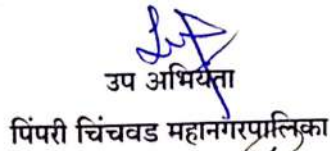 उप अभियंता
पिंपरी चिंचवड महानगरपालिका